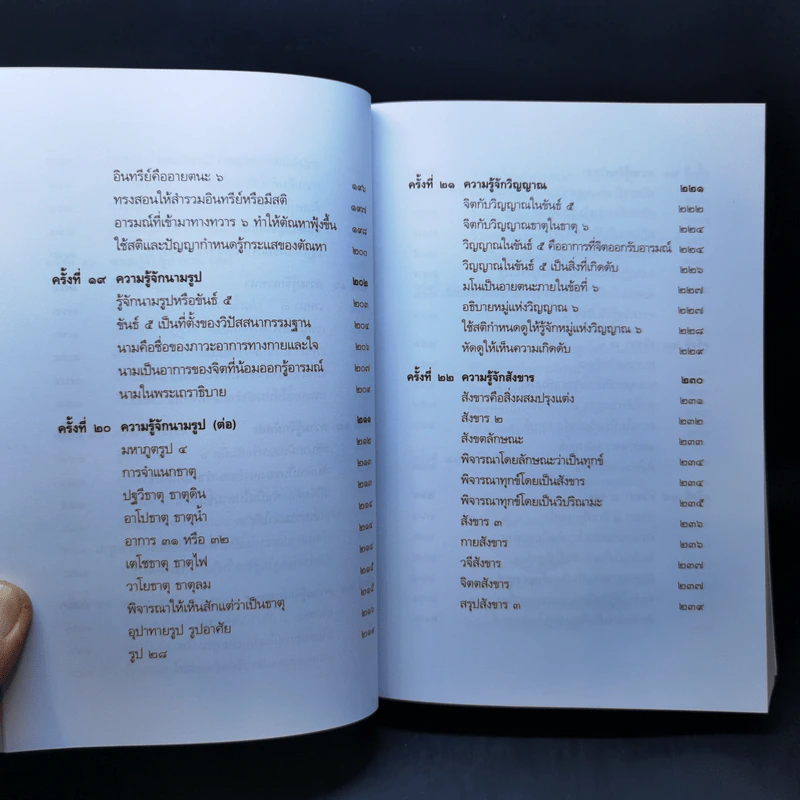 อินทรีย์คืออายตนะ ๖ ๑๙๖
ทรงสอนให้สำรวมอินทรีย์หรือมีสติ ๑๙๗
อารมณ์ที่เข้ามาทางทวาร ๖ ทำให้ตัณหาฟุ้งขึ้น ๑๙๘
ใช้สติและปัญญากำหนดรู้กระแสของตัณหา ๒๐๐
ครั้งที่ ๑๙ ความรู้จักนามรูป ๒๐๒
รู้จักนามรูปหรือขันธ์ ๕ ๒๐๓
ขันธ์ ๕ เป็นที่ตั้งของวิปัสสนากรรมฐาน ๒๐๔
นามคือชื่อของภาวะอาการทางกายและใจ ๒๐๖
นามเป็นอาการของจิตที่น้อมออกรู้อารมณ์ ๒๐๗
นามในพระเถราธิบาย ๒๐๙
ครั้งที่ ๒๐ ความรู้จักนามรูป (ต่อ) ๒๑๑
มหาภูตรูป ๔ ๒๑๒
การจำแนกธาตุ ๒๑๓
ปฐวีธาตุ ธาตุดิน ๒๑๓
อาโปธาตุ ธาตุน้ำ ๒๑๔
อาการ ๓๑ หรือ ๓๒ ๒๑๔
เตโชธาตุ ธาตุไฟ ๒๑๔
วาโยธาตุ ธาตุลม ๒๑๕
พิจารณาให้เห็นสักแต่ว่าเป็นธาตุ ๒๑๕
อุปาทายรูป รูปอาศัย ๒๑๖
รูป ๒๘ ๒๑๙
ครั้งที่ ๒๑ ความรู้จักวิญญาณ ๒๒๑
จิตกับวิญญาณในขันธ์ ๕ ๒๒๒
จิตกับวิญญาณธาตุในธาตุ ๖ ๒๒๔
วิญญาณในขันธ์ ๕ คืออาการที่จิตออกรับอารมณ์ ๒๒๔
วิญญาณในขันธ์ ๕ เป็นสิ่งที่เกิดดับ ๒๒๖
มโนเป็นอายตนะภายในข้อที่ ๖ ๒๒๗
อธิบายหมู่แห่งวิญญาณ ๖ ๒๒๗
ใช้สติกำหนดดูให้รู้จักหมู่แห่งวิญญาณ ๖ ๒๒๘
หัดดูให้เห็นความเกิดดับ ๒๒๙
ครั้งที่ ๒๒ ความรู้จักสังขาร ๒๓๐
สังขารคือสิ่งผสมปรุงแต่ง ๒๓๑
สังขาร ๒ ๒๓๒
สังขตลักษณะ ๒๓๓
พิจารณาโดยลักษณะว่าเป็นทุกข์ ๒๓๔
พิจารณาทุกข์โดยเป็นสังขาร ๒๓๔
พิจารณาทุกข์โดยเป็นวิปริณามะ ๒๓๕
สังขาร ๓ ๒๓๖
กายสังขาร ๒๓๖
วจีสังขาร ๒๓๗
จิตตสังขาร ๒๓๗
สรุปสังขาร ๓ ๒๓๙